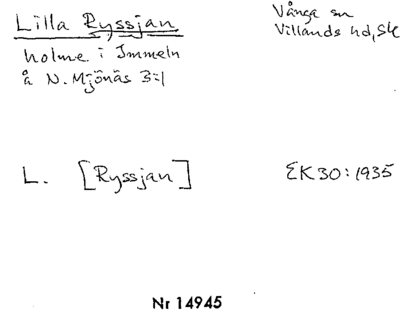 Lilla Ryssjan
holme i Immeln
å N. Mjönäs 3:1
Vånga sn
Villands hd, Sk
L. [Ryssjan]
EK 30:1935
Nr 14945